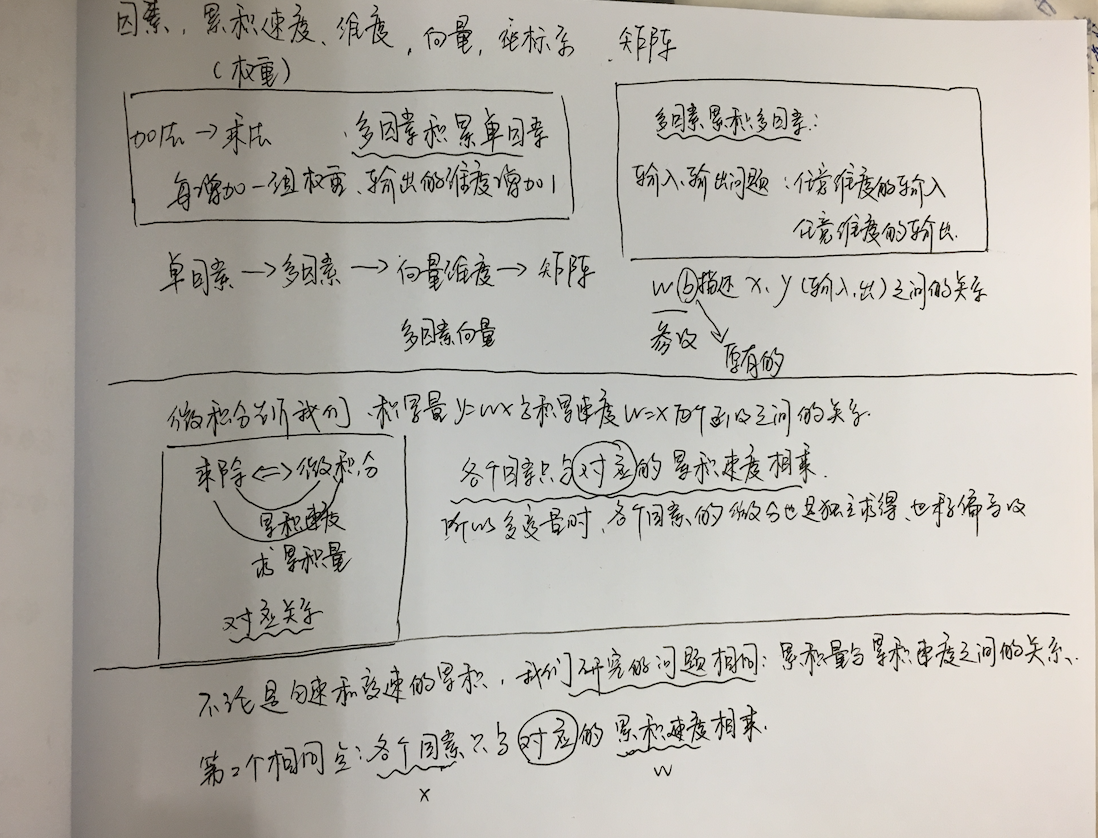 因素，累积速度、维度，向量，坐标系、矩阵
（权重）
加法→乘法 、多因素积累单因素
每增加一组权重、输出的维度增加1
多因素累积多因素：
输入、输出问题：任意维度的输入
任意维度的输出.
单因素→多因素→向量维度→矩阵
多因素向量
w b 描述 x、y（输入、出）之间的关系
参数
原有的
微积分告诉我们、积累量 y=wx 与积累速度 w=x 两个函数之间的关系.
乘除<=>微积分
累积速度
求累积量
对应关系
各个因素只与对应的累积速度相乘.
所以多变量时、各个因素的微分也是独立求得、也称偏导数
不论是匀速和变速的累积，我们研究的问题相同：累积量与累积速度之间的关系.
第2个相同点：各个因素只与对应的累积速度相乘.
x
w